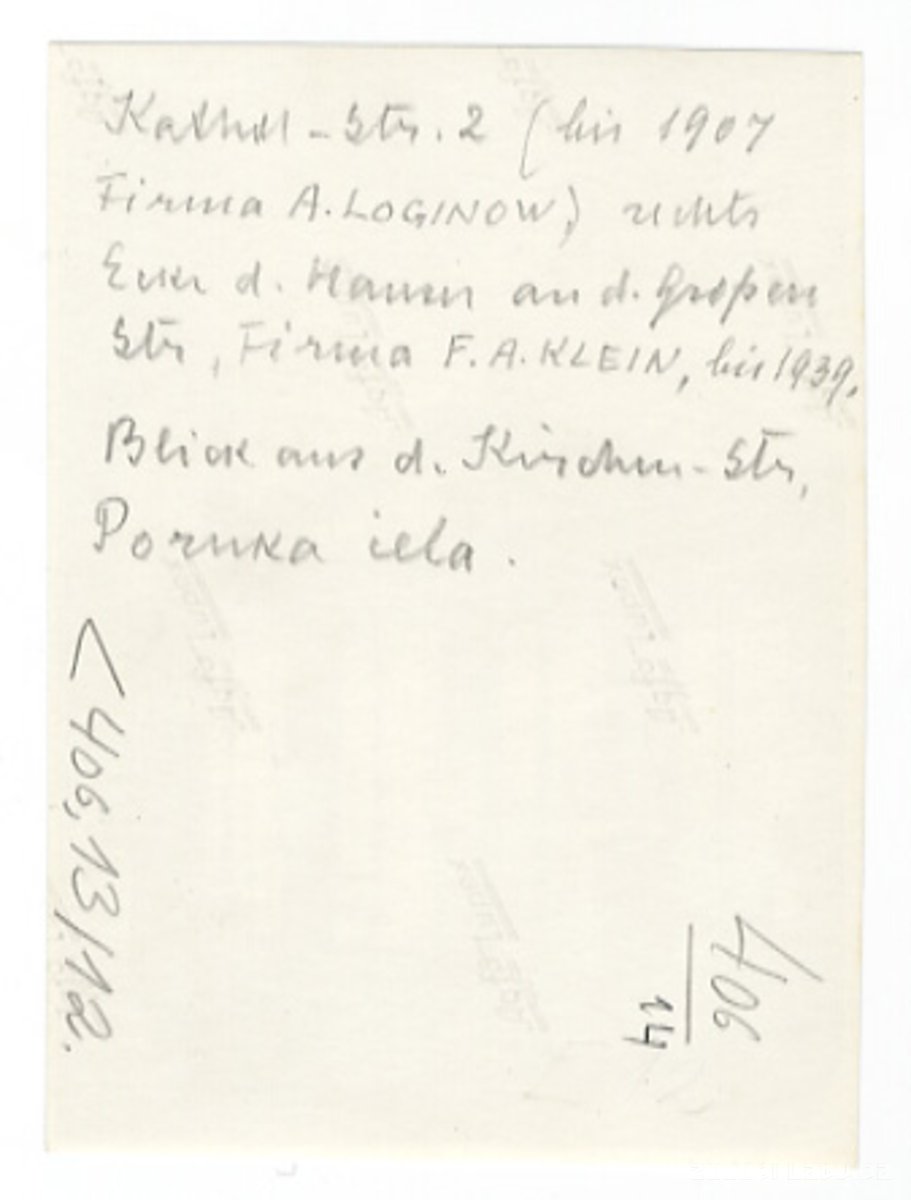 Kathol-Str. 2 (bis 1907
Firma A. LOGINOW,) rechts
Ecke d. Hauses an d. Großen
Str, Firma F. A. KLEIN, bis 1939.
Blick aus d. Kirchen-Str,
Poruka iela.
< 406, 13/12.
406
14